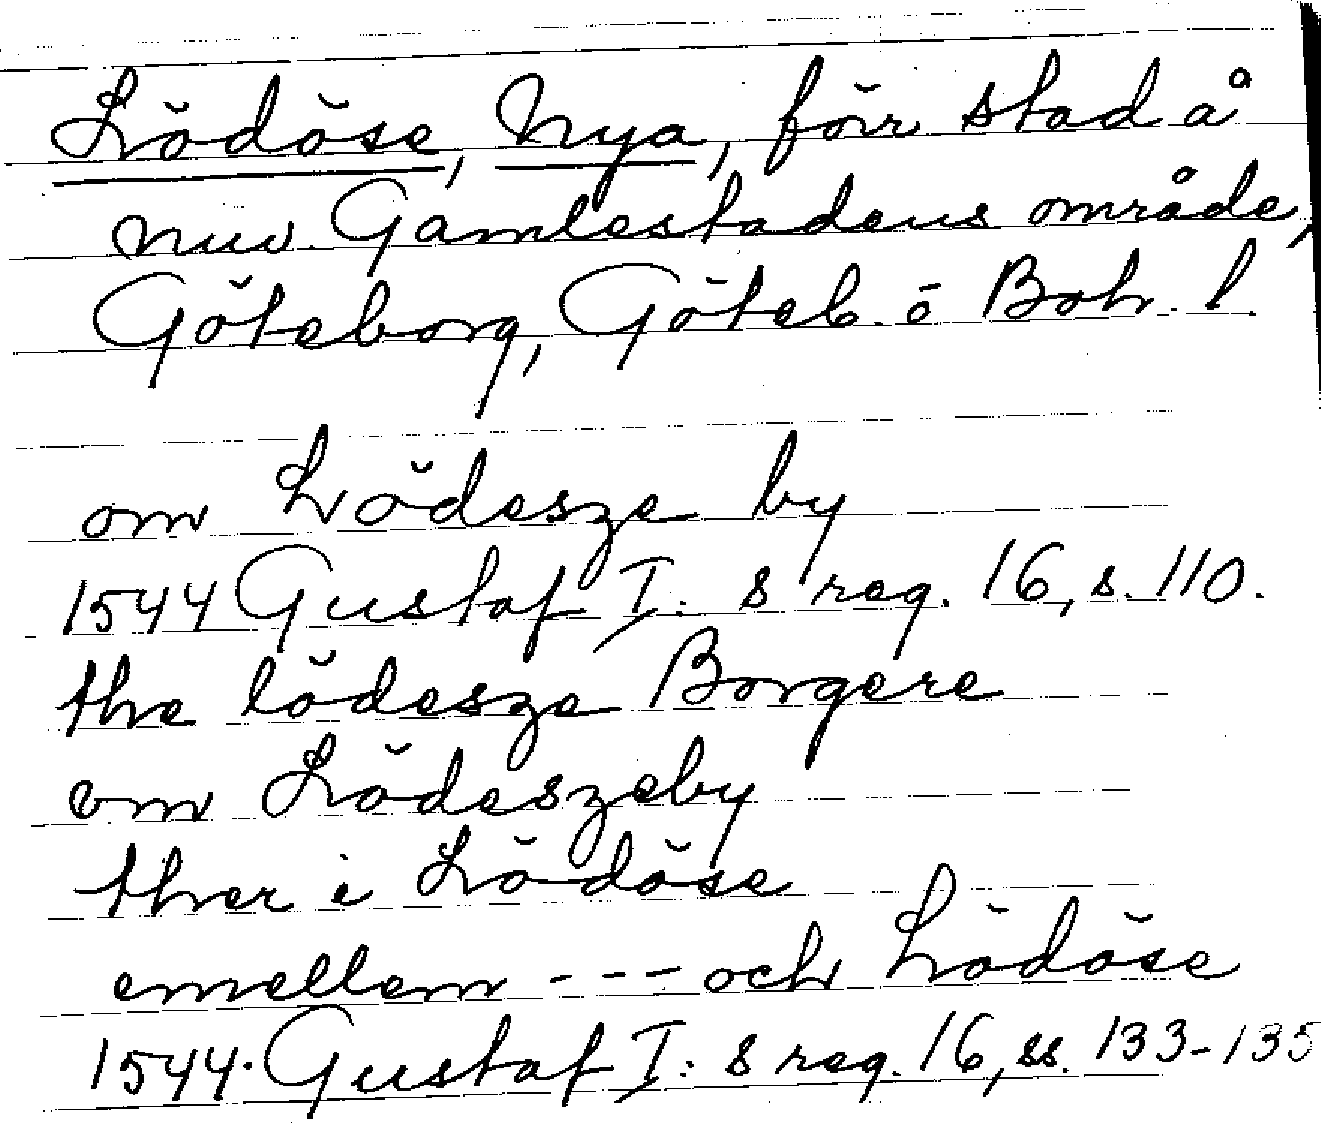 Lödöse, Nya, förr stad å
nuv. Gamlestadens område,
Göteborg, Göteb. o Boh. l.
om Lödesze by
1544 Gustaf I:s reg. 16, s. 110.
the lödesze Borgere
om Lödeszeby
ther i Lödöse
emellem --- och Lödöse
1544. Gustaf I:s reg. 16, ss. 133-135